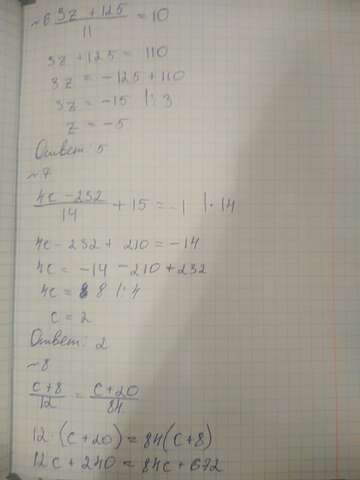 ~6 (3z + 125)/11 = 10
3z + 125 = 110
3z = -125 + 110
3z = -15 |:3
z = -5
Ответ: 5
~7
(4c - 232)/14 + 15 = -1 |·14
4c - 232 + 210 = -14
4c = -14 - 210 + 232
4c = 8 |:4
c = 2
Ответ: 2
~8
(c + 8)/12 = (c + 20)/84
12·(c + 20) = 84(c + 8)
12c + 240 = 84c + 672